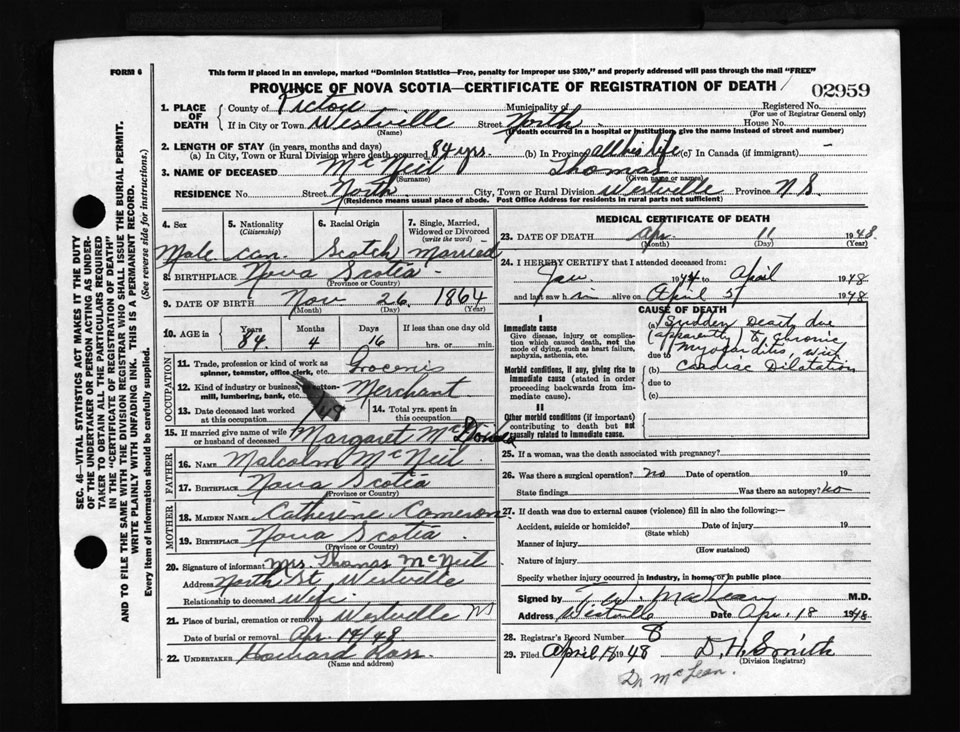 FORM 6
This form if placed in an envelope, marked "Dominion Statistics—Free, penalty for improper use $300," and properly addressed will pass through the mail "FREE"
PROVINCE OF NOVA SCOTIA—CERTIFICATE OF REGISTRATION OF DEATH
02959
1. PLACE OF DEATH
County of Pictou Municipality of Registered No.
(For use of Registrar General only)
If in City or Town Westville Street North House No.
(Name) (If death occurred in a hospital or institution, give the name instead of street and number)
2. LENGTH OF STAY (in years, months and days)
(a) In City, Town or Rural Division where death occurred 84 yrs. (b) In Province all his life (c) In Canada (if immigrant) —
3. NAME OF DECEASED McNeil Thomas
(Surname) (Given name or names)
RESIDENCE No. Street North City, Town or Rural Division Westville Province N.S.
(Residence means usual place of abode. Post Office Address for residents in rural parts not sufficient)
SEC. 46—VITAL STATISTICS ACT MAKES IT THE DUTY
OF THE UNDERTAKER OR PERSON ACTING AS UNDER-
TAKER TO OBTAIN ALL THE PARTICULARS REQUIRED
IN THE "CERTIFICATE OF REGISTRATION OF DEATH"
AND TO FILE THE SAME WITH THE DIVISION REGISTRAR WHO SHALL ISSUE THE BURIAL PERMIT.
WRITE PLAINLY WITH UNFADING INK. THIS IS A PERMANENT RECORD.
Every item of information should be carefully supplied. (See reverse side for instructions.)
4. Sex 5. Nationality 6. Racial Origin 7. Single, Married,
(Citizenship) Widowed or Divorced
(write the word)
Male Can. Scotch Married
8. BIRTHPLACE Nova Scotia
(Province or Country)
9. DATE OF BIRTH Nov 26 1864
(Month) (Day) (Year)
10. AGE in Years Months Days If less than one day old
84 4 16 hrs. or min.
OCCUPATION
11. Trade, profession or kind of work as
spinner, teamster, office clerk, etc.
12. Kind of industry or business,
mill, lumbering, bank, etc. Merchant
13. Date deceased last worked 14. Total yrs. spent in
at this occupation in this occupation
15. If married give name of wife
or husband of deceased Margaret McDonald
FATHER
16. NAME Malcolm McNeil
17. BIRTHPLACE Nova Scotia
(Province or Country)
MOTHER
18. MAIDEN NAME Catherine Cameron
19. BIRTHPLACE Nova Scotia
(Province or Country)
20. Signature of informant Mrs. Thomas McNeil
Address North St. Westville
Relationship to deceased Wife
21. Place of burial, cremation or removal Westville NS
Date of burial or removal Apr. 14/48
22. UNDERTAKER Howard Ross
(Name and address)
MEDICAL CERTIFICATE OF DEATH
23. DATE OF DEATH Apr. 11 1948
(Month) (Day) (Year)
24. I HEREBY CERTIFY that I attended deceased from:
Jan 1944 to April 1948
and last saw him alive on April 5 1948
CAUSE OF DEATH
I
Immediate cause
Give disease, injury or complication which caused death, not the mode of dying, such as heart failure, asphyxia, asthenia, etc.
(a) Sudden Death due
(apparently) to chronic
due to Myocarditis, with
Cardiac Dilatation
Morbid conditions, if any, giving rise to immediate cause (stated in order proceeding backwards from immediate cause).
(b)
due to
(c)
II
Other morbid conditions (if important) contributing to death but not causally related to immediate cause.
25. If a woman, was the death associated with pregnancy?
26. Was there a surgical operation? no Date of operation 19
State findings Was there an autopsy? no
27. If death was due to external causes (violence) fill in also the following:—
Accident, suicide or homicide? Date of injury 19
(State which)
Manner of injury
(How sustained)
Nature of injury
Specify whether injury occurred in industry, in home, or in public place
Signed by McLean M.D.
Address Westville Date Apr. 18 1948
28. Registrar's Record Number 8
29. Filed April 1948 D. H. Smith
(Division Registrar)
Dr. McLean.